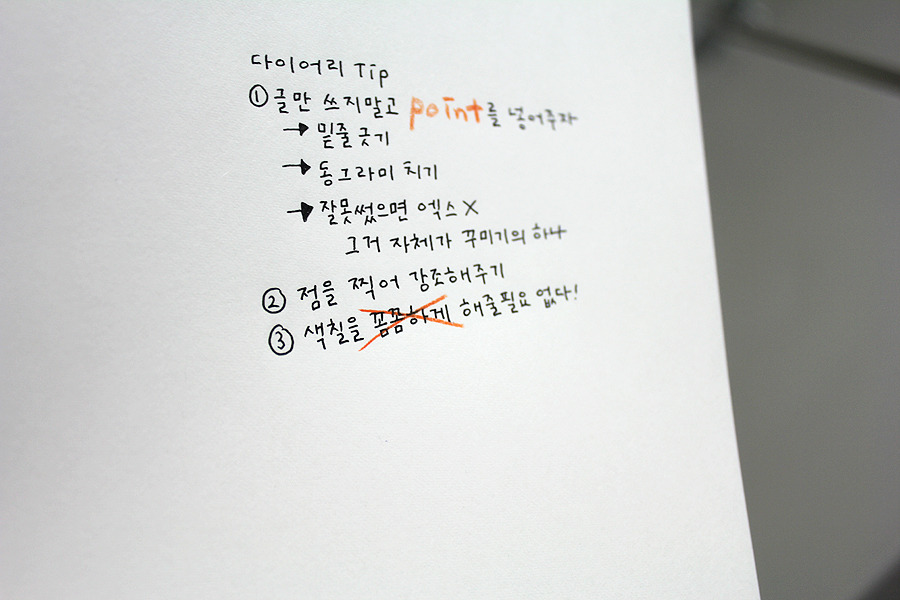 다이어리 Tip
① 글만 쓰지말고 point를 넣어주자
→ 밑줄 긋기
→ 동그라미 치기
→ 잘못썼으면 엑스 X
그거 자체가 꾸미기의 하나
② 점을 찍어 강조해주기
③ 색칠을 꼼꼼하게 해줄필요 없다!